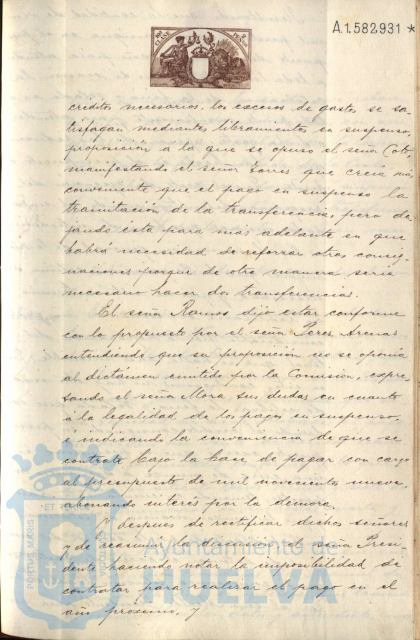 A.1.582.931 *
créditos necesarios, los excesos de gastos se sa-
tisfagan mediante libramientos en suspenso,
proposición a la que se opuso el señor
manifestando el señor Torres que creía más
conveniente que el pago en suspenso la
tramitación de la transferencia, pero de-
jando esta para más adelante en que
habrá necesidad de reforzar otras consig-
naciones porque de otra manera sería
necesario hacer dos transferencias.
El señor Ramos dijo estar conforme
con lo propuesto por el señor Perez Arenas
entendiendo que su proposición no se oponía
al dictámen emitido por la Comisión, expre-
sando el señor Mora sus dudas en cuanto
á la legalidad de los pagos en suspenso,
é indicando la conveniencia de que se
contrate bajo la base de pagar con cargo
al presupuesto de mil novecientos nueve
abonando interés por la demora.
Y despues de rectificar dichos señores
y de la discusión el señor Presi-
dente haciendo notar la imposibilidad de
contratar para realizar el pago en el
año próximo, y
Ayuntamiento de
HUELVA
PORTUS MARIS
ET